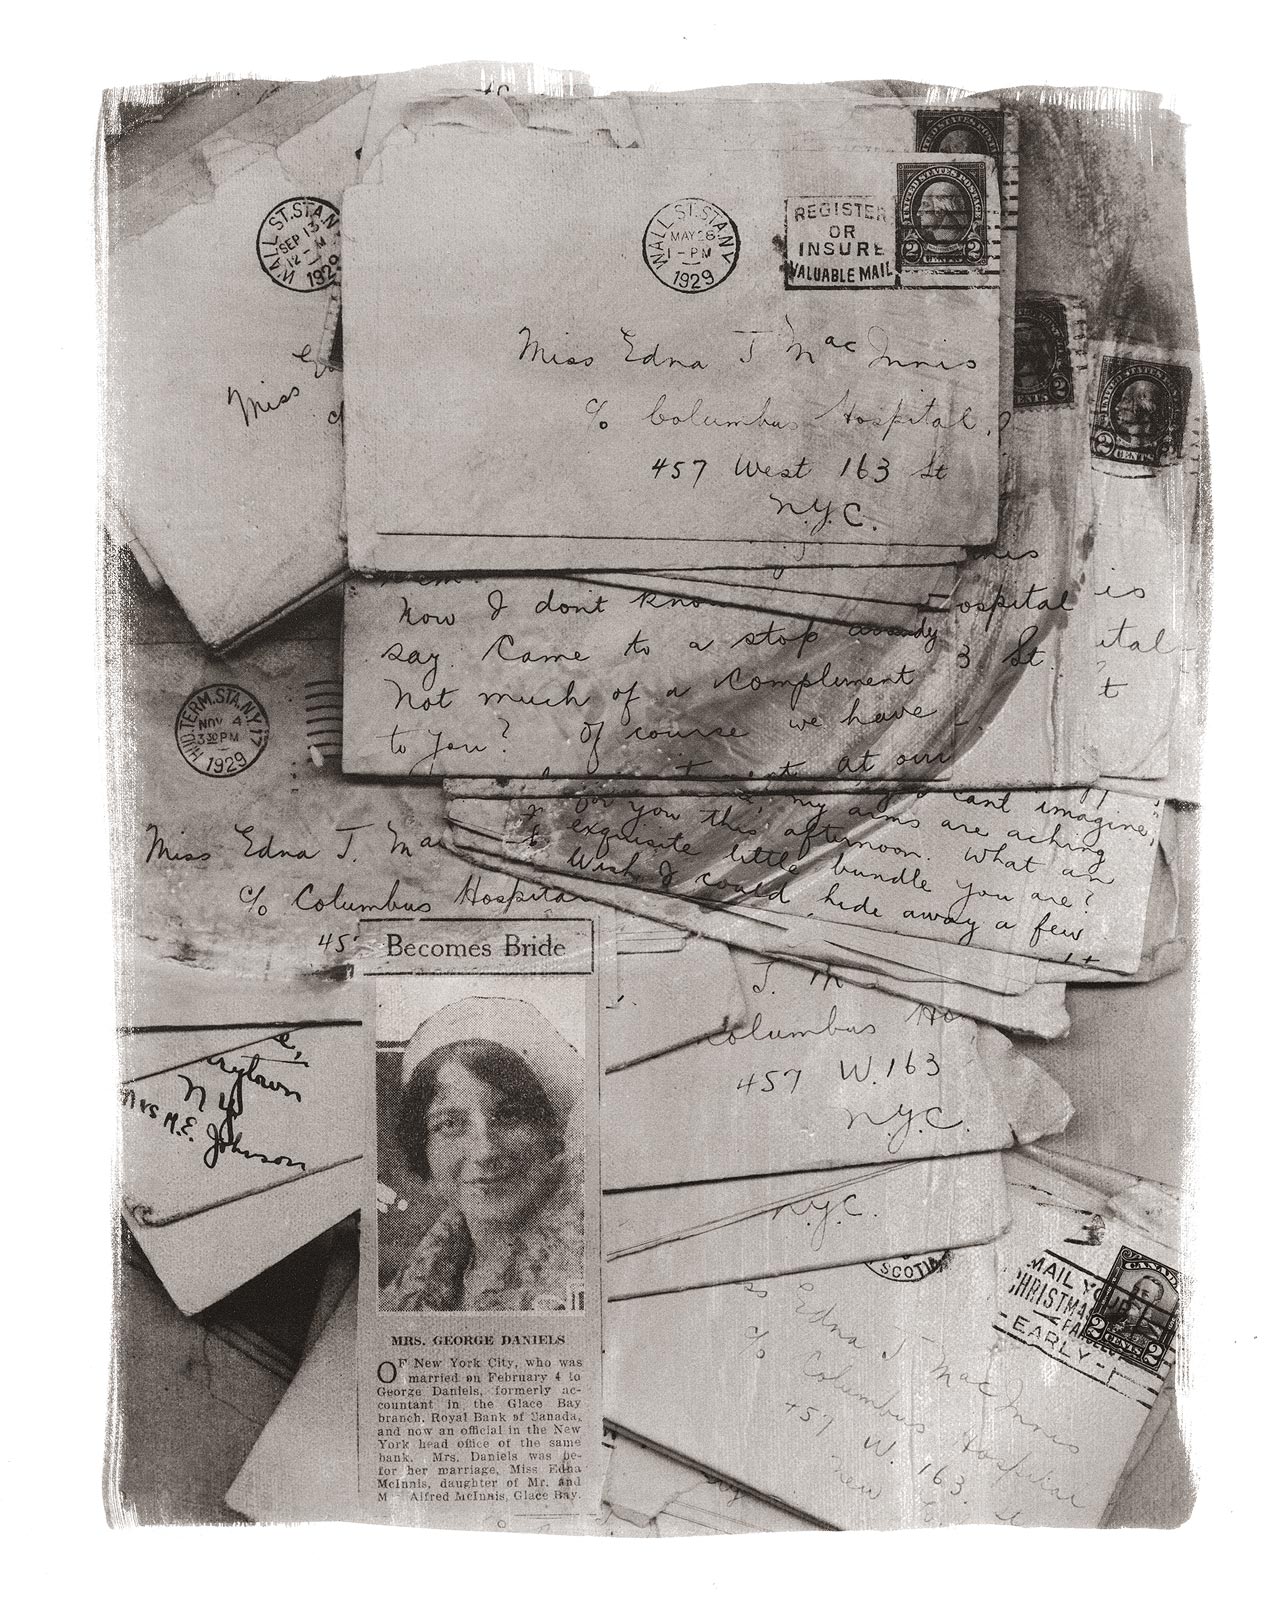 WALL ST. STA. N
SEP 13
12 M
192
Miss
WALL ST. STA. N.Y.
MAY 28
1-PM
1929
REGISTER
OR
INSURE
VALUABLE MAIL
UNITED STATES POSTAGE
2 CENTS 2
Miss Edna J MacInnis
c/o Columbus Hospital,
457 West 163 St
N.Y.C.
CENTS 2
2 CENTS
Now I dont kno
say. Came to a stop already
Not much of a compliment
to you? Of course we have
at our
ospital
3 St.
is
ital
t
HUD. TERM. STA. N.Y. 17
NOV 4
3 30 PM
1929
Miss Edna J. Ma
c/o Columbus Hospita
45
cant imagine,
for you this afternoon, my arms are aching
exquisite little bundle you are? What an
Wish I could hide away a few
J. M
olumbus Ho
457 W. 163
N.Y.C.
N.Y.C.
rytown
N Y
Mrs H.E.
Johnson
Becomes Bride
MRS. GEORGE DANIELS
OF New York City, who was
married on February 4 to
George Daniels, formerly ac-
countant in the Glace Bay
branch, Royal Bank of Canada,
and now an official in the New
York head office of the same
bank. Mrs. Daniels was be-
for her marriage, Miss Edna
McInnis, daughter of Mr. and
M Alfred McInnis, Glace Bay.
SCOTIA
MAIL YOUR
CHRISTMAS
PARCELS
EARLY
CANADA
2 CENTS 2
ss Edna J MacInnis
c/o Columbus Hospital
457 W. 163. St
New